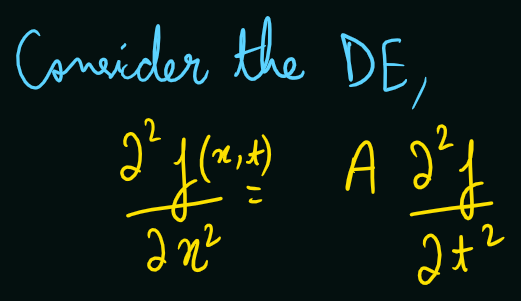 Consider the DE,
∂²f(x,t)/∂x² = A ∂²f/∂t²